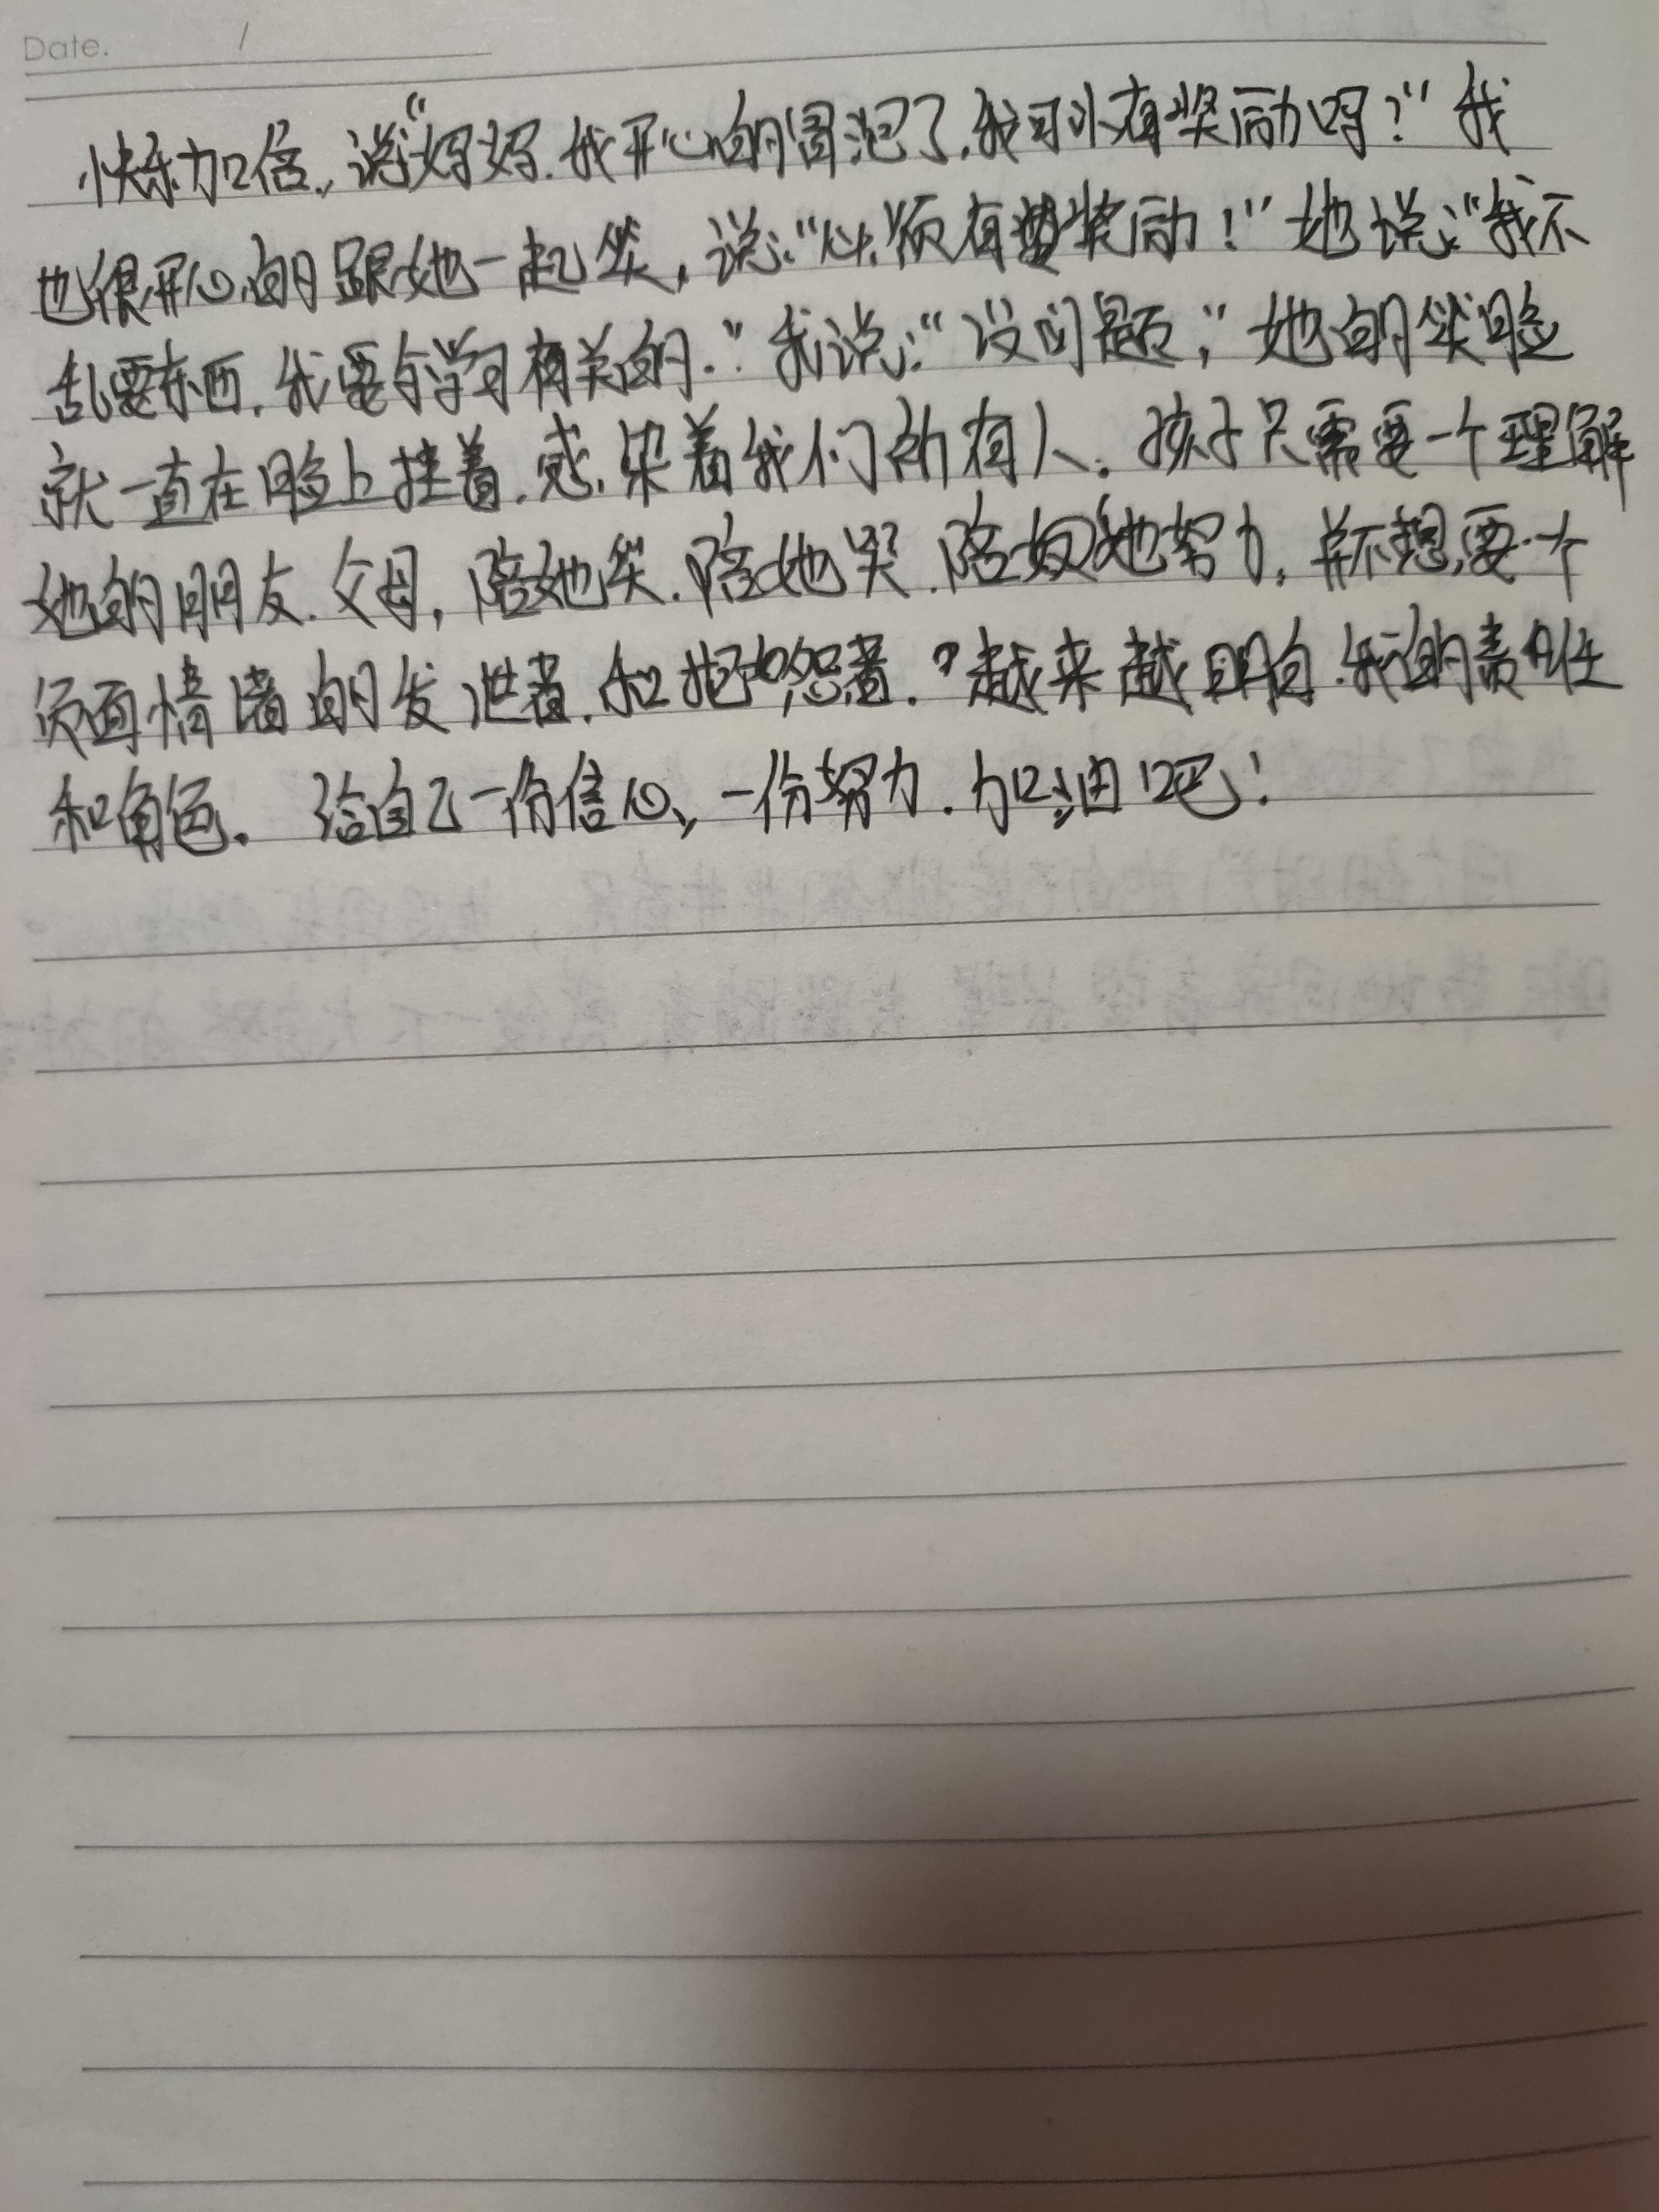 Date. /
快乐加倍，说"妈妈.我开心的冒泡了，我可以有奖励吗？"我
也很开心的跟她一起笑，说："必须有奖励！"她说："我不
乱要东西，我要与学习有关的."我说："没问题，"她的笑脸
就一直在脸上挂着.感染着我们所有人。孩子只需要一个理解
她的朋友.父母，陪她笑.陪她哭.陪她努力，并不想要一个
负面情绪的发泄者.和抱怨者.越来越明白.我的责任
和角色。给自己一份信心、一份努力.加油吧！